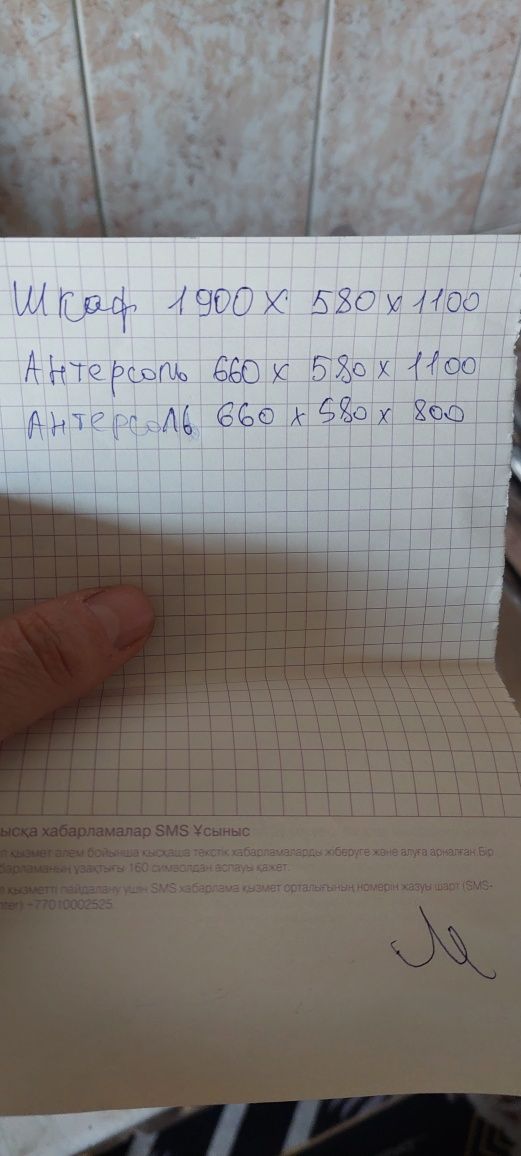 Шкаф 1900 х 580 х 1100
Антерсоль 660 х 580 х 1100
Антерсоль 660 х 580 х 800
ысқа хабарламалар SMS Ұсыныс
қызмет әлем бойынша қысқаша текстік хабарламаларды жіберуге және алуға арналған.Бір
барламаның ұзақтығы 160 символдан аспауы қажет.
қызметті пайдалану үшін SMS хабарлама қызмет орталығының номерін жазуы шарт (SMS-
nter) +77010002525.